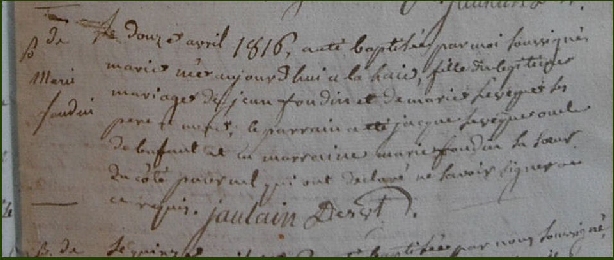 B. de
Marie
foudin
le douze avril 1816, a été baptisée par moi soussigné
marie née aujourd'hui à la haie, fille du légitime
mariage de jean foudin et de marie Levêque ses
père et mère, le parrain a été jacque Levêque oncle
de l'enfant et la marraine marie foudin sa sœur
du côté paternel qui ont déclaré ne savoir signer de
ce requis. jaulain Desert.
B. de
baptisée par nous soussigné